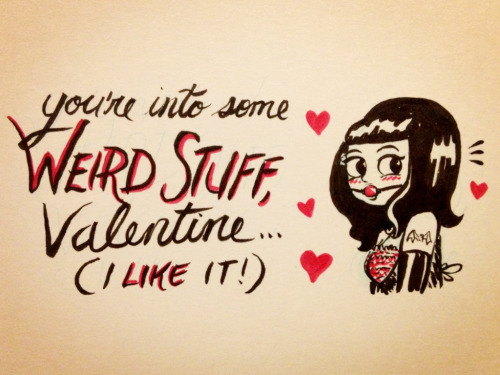 you're into some
WEIRD STUFF,
Valentine...
(I LIKE IT!)